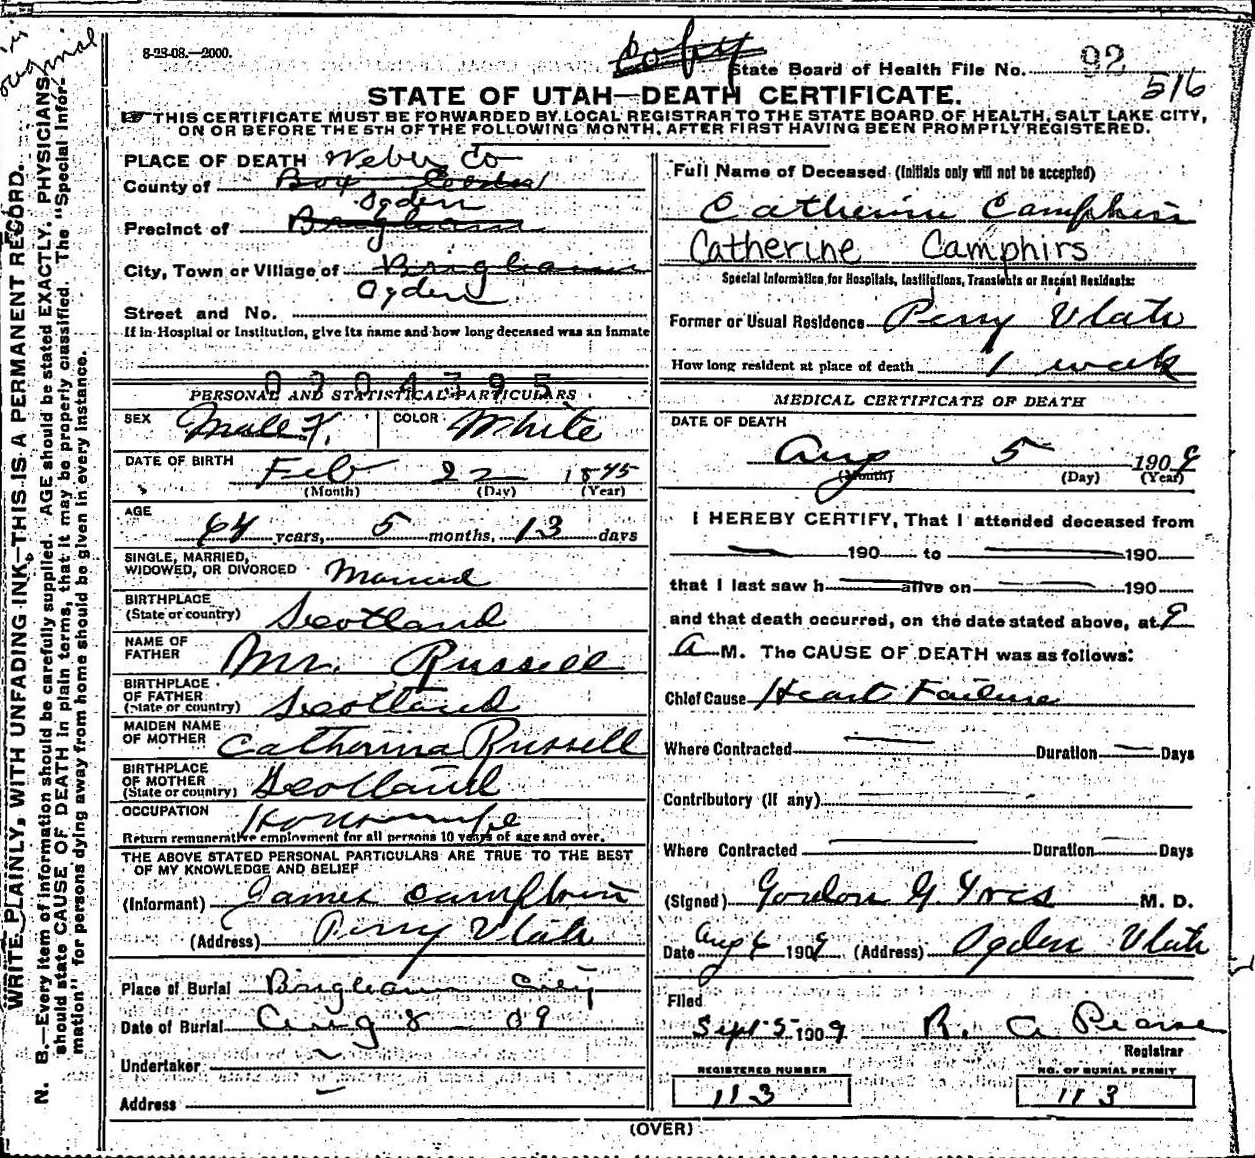 in
original
8-28-08.—2000.
Copy
State Board of Health File No. 92
516
STATE OF UTAH—DEATH CERTIFICATE.
☞ THIS CERTIFICATE MUST BE FORWARDED BY LOCAL REGISTRAR TO THE STATE BOARD OF HEALTH, SALT LAKE CITY,
ON OR BEFORE THE 5TH OF THE FOLLOWING MONTH, AFTER FIRST HAVING BEEN PROMPTLY REGISTERED.
PLACE OF DEATH Weber Co
County of Box Elder
Ogden
Precinct of Brigham
City, Town or Village of Brigham
Ogden
Street and No.
If in Hospital or Institution, give its name and how long deceased was an inmate
0204395
PERSONAL AND STATISTICAL PARTICULARS
SEX Male F. COLOR White
DATE OF BIRTH Feb 22 1845
(Month) (Day) (Year)
AGE
64 years, 5 months, 13 days
SINGLE, MARRIED,
WIDOWED, OR DIVORCED Married
BIRTHPLACE
(State or country) Scotland
NAME OF
FATHER Mr. Russell
BIRTHPLACE
OF FATHER
(State or country) Scotland
MAIDEN NAME
OF MOTHER Catherina Russell
BIRTHPLACE
OF MOTHER
(State or country) Scotland
OCCUPATION Housewife
Return remunerative employment for all persons 10 years of age and over.
THE ABOVE STATED PERSONAL PARTICULARS ARE TRUE TO THE BEST
OF MY KNOWLEDGE AND BELIEF
(Informant) James
(Address) Perry Utah
Place of Burial Brigham City
Date of Burial Aug 8 - 09
Undertaker
Address
Full Name of Deceased (Initials only will not be accepted)
Catherine
Catherine Camphirs
Special Information for Hospitals, Institutions, Transients or Recent Residents:
Former or Usual Residence Perry Utah
How long resident at place of death 1 week
MEDICAL CERTIFICATE OF DEATH
DATE OF DEATH
Aug 5 1909
(Month) (Day) (Year)
I HEREBY CERTIFY, That I attended deceased from
190 to 190
that I last saw h alive on 190
and that death occurred, on the date stated above, at 9
A M. The CAUSE OF DEATH was as follows:
Chief Cause Heart Failure
Where Contracted Duration Days
Contributory (if any)
Where Contracted Duration Days
(Signed) Gordon G. M. D.
Date Aug 6 1909 (Address) Ogden Utah
Filed
Sept 5 1909 R. A Pearse
Registrar
REGISTERED NUMBER
113
NO. OF BURIAL PERMIT
113
(OVER)
WRITE PLAINLY, WITH UNFADING INK—THIS IS A PERMANENT RECORD.
N. B.—Every item of information should be carefully supplied. AGE should be stated EXACTLY. PHYSICIANS
should state CAUSE OF DEATH in plain terms, that it may be properly classified. The "Special Infor-
mation" for persons dying away from home should be given in every instance.